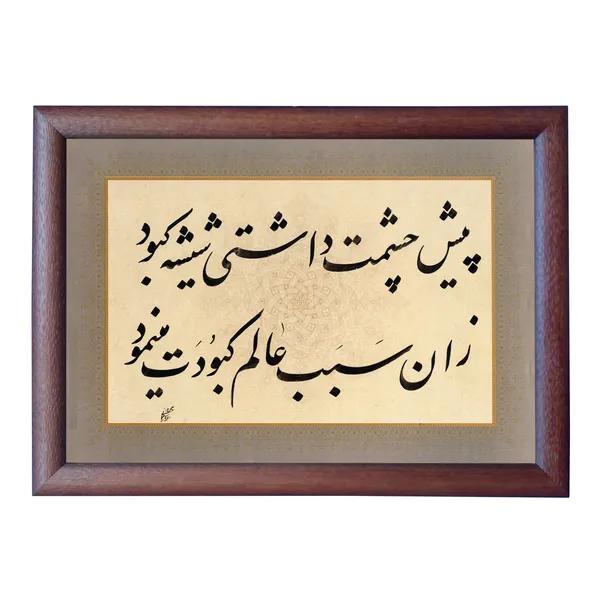 پیش چشمت داشتی شیشه کبود
زان سبب عالم کبودت مینمود